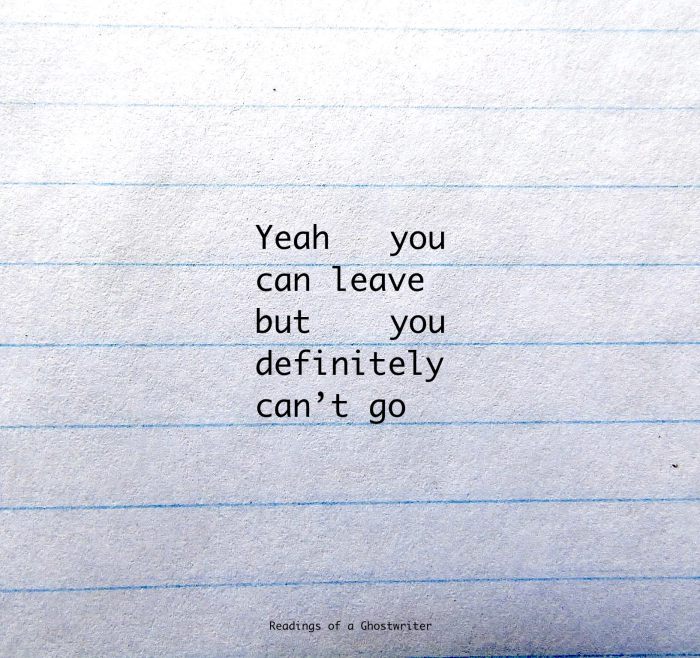 Yeah you
can leave
but you
definitely
can’t go
Readings of a Ghostwriter